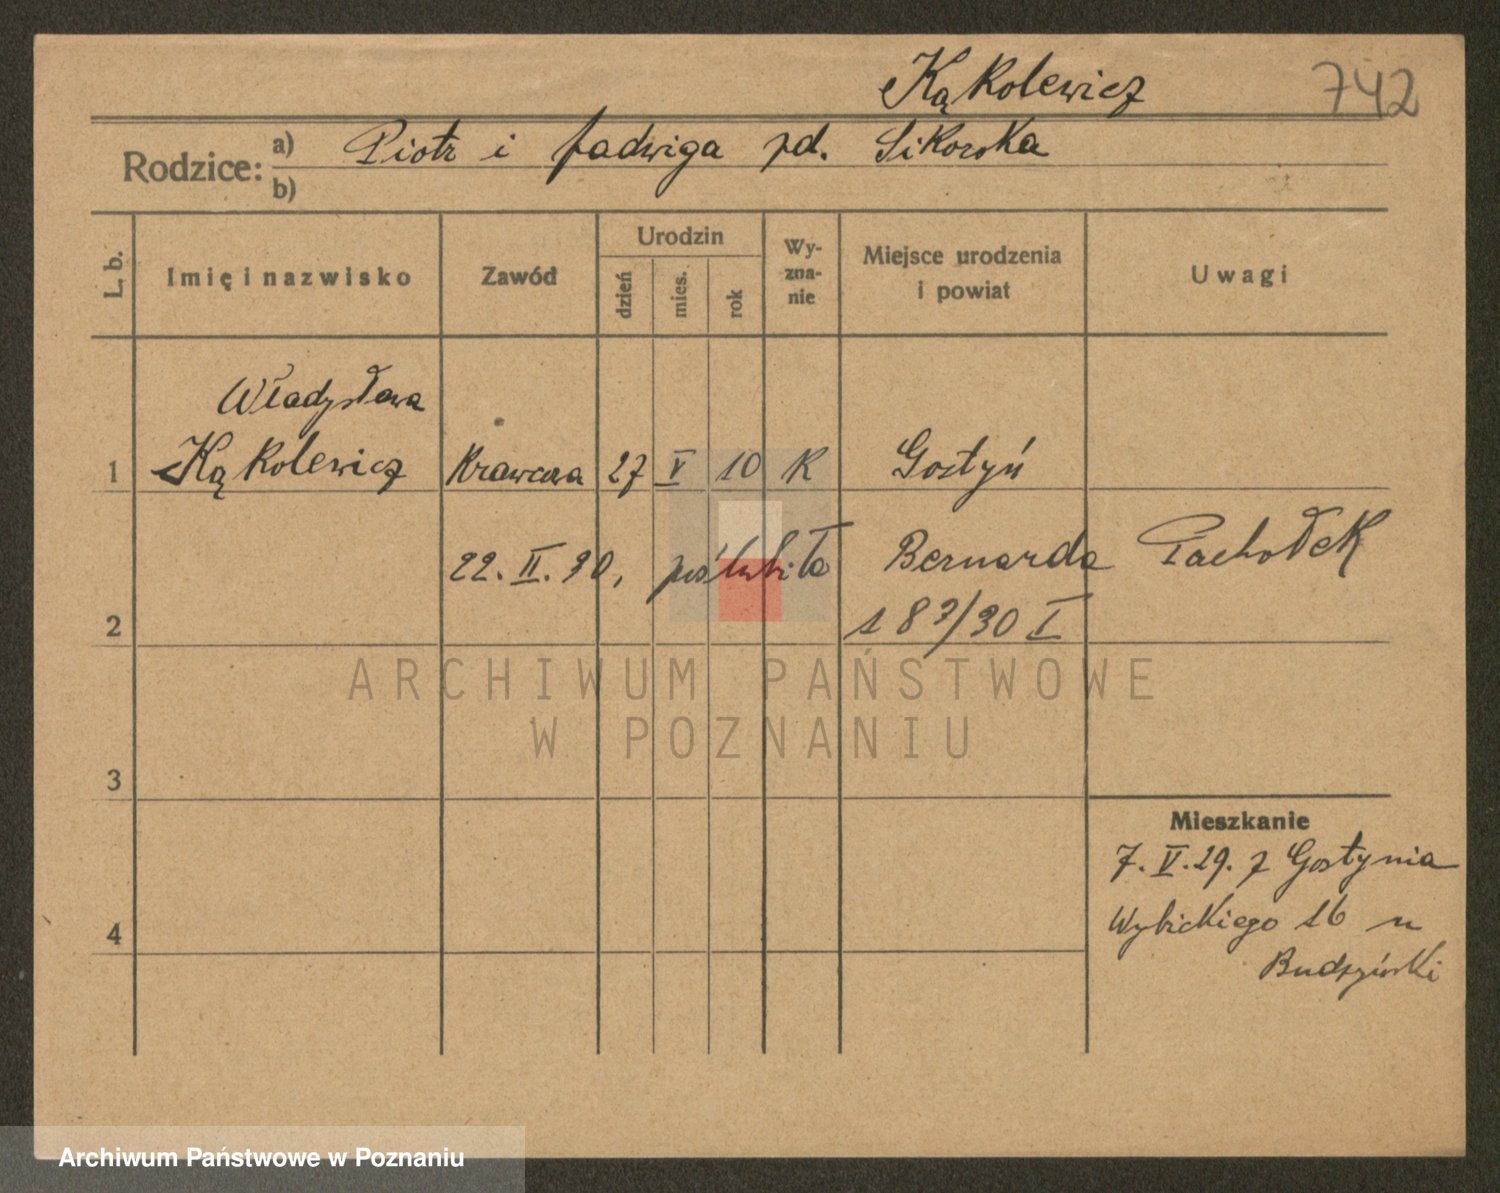 Kąkolewicz 742
Rodzice: a) Piotr i Jadwiga zd. Sikorska
b)
L. b. Imię i nazwisko Zawód Urodzin dzień mies. rok Wy-zna-nie Miejsce urodzenia i powiat Uwagi
Władysława
1 Kąkolewicz Krawcowa 27 V 10 K Gostyń
22. II. 30, poślubiła Bernarda Pachołek
2 187/30 I
ARCHIWUM PAŃSTWOWE
W POZNANIU
3
Mieszkanie
7. V. 29. z Gostynia
4 Wybickiego 16 u
Budzyński
Archiwum Państwowe w Poznaniu